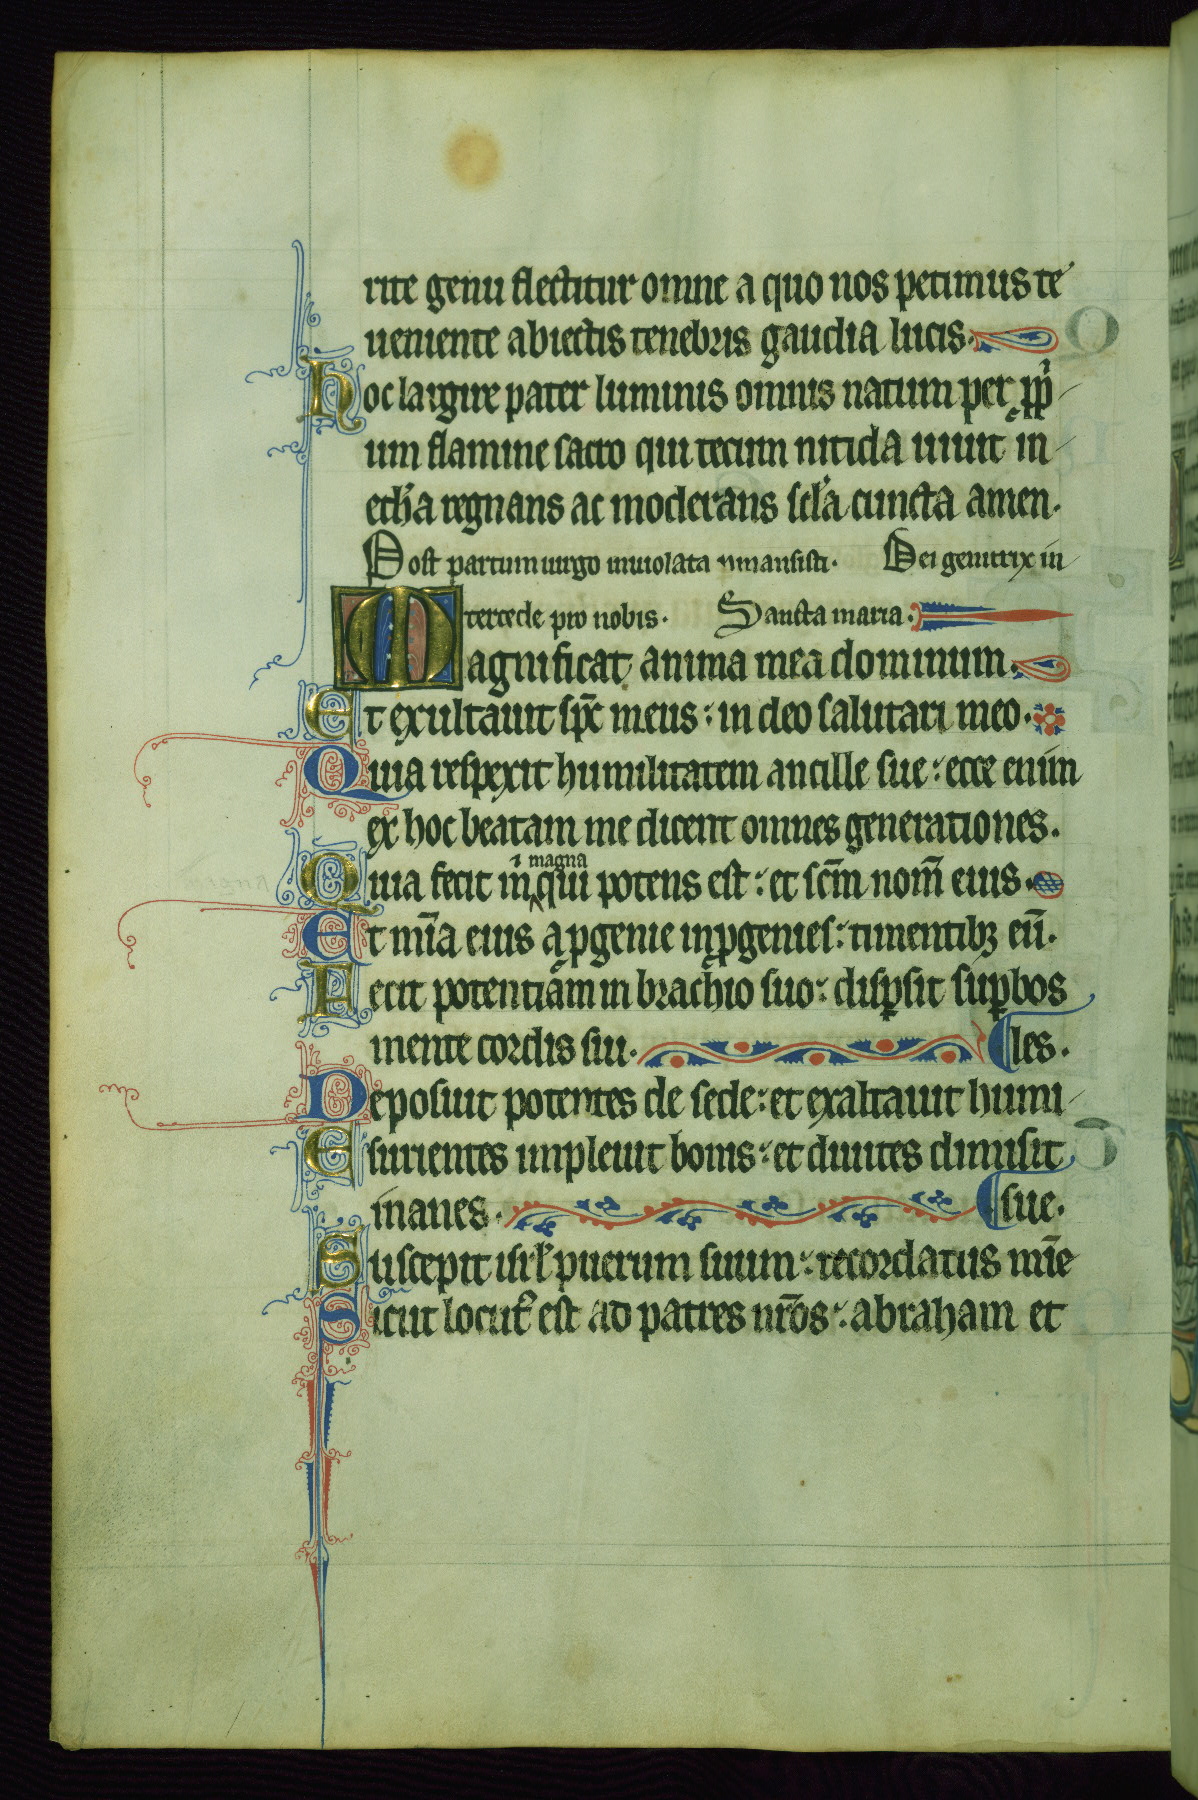 rite genu flectitur omne a quo nos petimus te
ueniente abiectis tenebris gaudia lucis.
Hoc largire pater luminis omnis natum per pp̄i
um flamine sacro qui tecum nitida uiuit in
eth̄a regnans ac moderans scl̄a cuncta amen.
Post partum uirgo inuiolata pmansisti. Dei genitrix in
tercede pro nobis. Sancta maria.
Magnificat anima mea dominum.
Et exultauit sp̄c meus: in deo salutari meo.
Quia respexit humilitatem ancille sue: ecce enim
ex hoc beatam me dicent omnes generationes.
Quia fecit m magna qui potens est: et sc̄m nom̄ eius.
Et mīa eius a ꝓgenie in ꝓgenies: timentibꝫ eū.
Fecit potentiam in brachio suo: dispsit supbos
mente cordis sui. les.
Deposuit potentes de sede: et exaltauit humi
Esurientes impleuit bonis: et diuites dimisit
inanes. sue.
Suscepit isrl̄ puerum suum: recordatus mīe
Sicut locut᷒ est ad patres nr̄os: abraham et